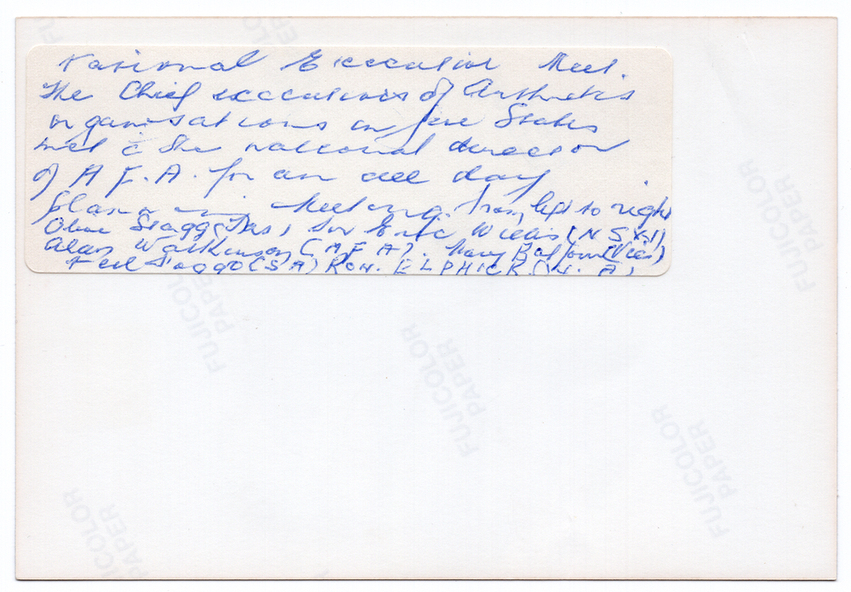 National Executive Meet.
The Chief executives of Arthritis
organisations in five States
met c̄ the national director
of A F. A. for an all day
planning Meeting. from left to right
Olive Stagg (Tas) Sir Eric Willis (NSW)
Alan Watkinson (A F A). Mary Balfour (Vic)
(SA) Ron. ELPHICK (W. A)
FUJICOLOR
PAPER
FUJICOLOR
PAPER
FUJICOLOR
PAPER
FUJICOLOR
PAPER
FUJICOLOR
PAPER